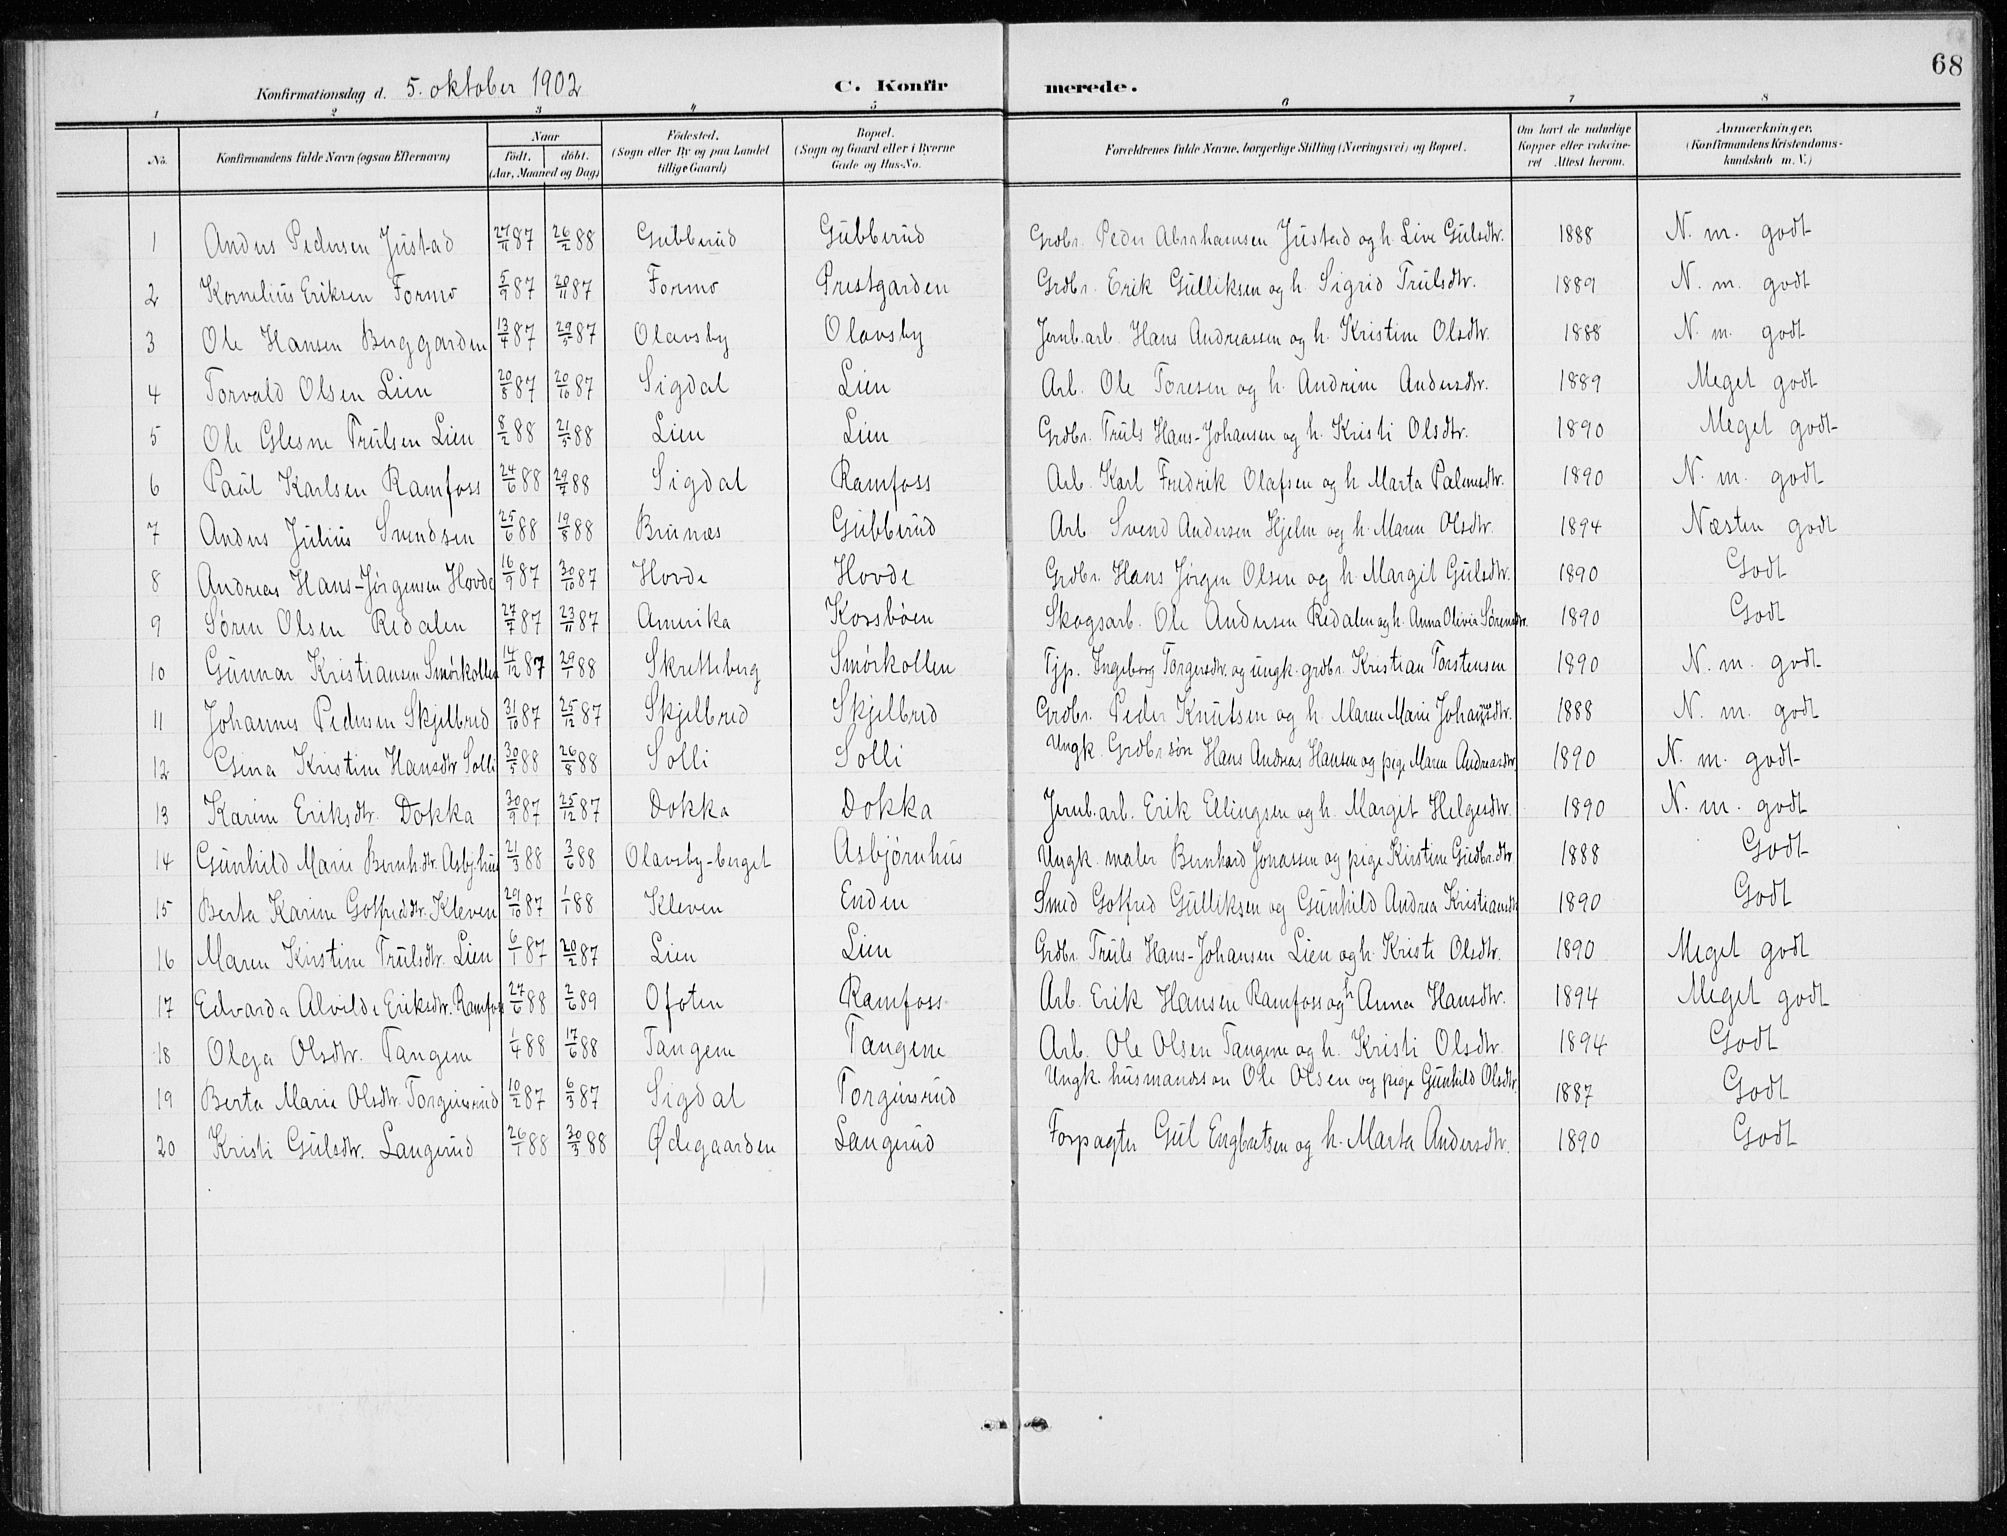 68
Konfirmationsdag d. 5. oktober 1902 C. Konfirmerede.
1 2 3 4 5 6 7 8
No. Konfirmandens fulde Navn (ogsaa Efternavn) Naar födt. döbt. (Aar, Maaned og Dag) Födested. (Sogn eller By og paa Landet tillige Gaard) Bopæl. (Sogn og Gaard eller i Byerne Gade og Hus-No. Forældrenes fulde Navne, borgerlige Stilling (Næringsvei) og Bopæl. Om havt de naturlige Kopper eller vakcineret Attest herom. Anmærkninger. (Konfirmandens Kristendomskundskab m. V.)
1 Anders Pedersen Justad 27/11 87 26/2 88 Gubberud Gubberud Grdbr. Peder Abrahamsen Justad og h. Live Gulsdtr. 1888 N. m. godt
2 Kornelius Eriksen Formo 5/9 87 20/11 87 Formo Prestgarden Grdbr. Erik Gulliksen og h. Sigrid Trulsdtr. 1889 N. m. godt
3 Ole Hansen Berggarden 13/4 87 29/5 87 Olavsby Olavsby Jernb.arb. Hans Andreassen og h. Kristine Olsdtr. 1888 N. m. godt
4 Torvald Olsen Lien 20/8 87 20/10 87 Sigdal Lien Arb. Ole Toresen og h. Andrine Andersdtr. 1889 Meget godt
5 Ole Glesne Trulsen Lien 8/2 88 21/5 88 Lien Lien Grdbr. Truls Hans-Johansen og h. Kristi Olsdtr. 1890 Meget godt
6 Paul Karlsen Ramfoss 24/6 88 29/7 88 Sigdal Ramfoss Arb. Karl Fredrik Olafsen og h. Marta Palmesdtr. 1890 N. m. godt
7 Anders Julius Svendsen 25/6 88 19/8 88 Brunæs Gubberud Arb. Svend Andersen Hjelm og h. Maren Olsdtr. 1894 Næsten godt
8 Andreas Hans-Jørgensen Hovde 16/9 87 30/10 87 Hovde Hovde Grdbr. Hans Jørgen Olsen og h. Margit Gulsdtr. 1890 Godt
9 Søren Olsen Redalen 27/7 87 23/11 87 Amerika Korsbøen Skogsarb. Ole Andersen Redalen og h. Anna Olivia Sørensdtr. 1890 Godt
10 Gunnar Kristiansen Smørkollen 14/12 87 29/1 88 Skretteberg Smørkollen Tjp. Ingeborg Torgersdtr. og ungk. grdbr. Kristian Torstensen 1890 N. m. godt
11 Johannes Pedersen Skjelbred 31/10 87 25/12 87 Skjelbred Skjelbred Grdbr. Peder Knutsen og h. Maren Marie Johannesdtr. 1888 N. m. godt
12 Gina Kristine Hansdtr Solli 30/5 88 26/8 88 Solli Solli Ungk. Grdbr søn Hans Andreas Hansen og pige Maren Andreasdtr. 1890 N. m. godt
13 Karine Eriksdtr. Dokka 30/9 87 25/12 87 Dokka Dokka Jernb.arb. Erik Ellingsen og h. Margit Helgesdtr. 1890 N. m. godt
14 Gunhild Marie Bernh.dtr. Asbj.hus 21/3 88 3/6 88 Olavsby-berget Asbjørnhus Ungk. maler Bernhard Jonassen og pige Kirstine Gudbr.dtr. 1888 Godt
15 Berta Karine Gotfredsdtr. Kleven 29/10 87 1/1 88 Kleven Enden Smed Gotfred Gulliksen og Gunhild Andrea Kristiansdtr. 1890 Godt
16 Maren Kristine Trulsdtr. Lien 6/1 87 20/2 87 Lien Lien Grdbr. Truls Hans-Johansen Lien og h. Kristi Olsdtr. 1890 Meget godt
17 Edvarda Alvilde Eriksdtr. Ramfoss 27/6 88 2/6 89 Ofoten Ramfoss Arb. Erik Hansen Ramfoss og h Anna Hansdtr. 1894 Meget godt
18 Olga Olsdtr. Tangene 1/4 88 17/6 88 Tangene Tangene Arb. Ole Olsen Tangene og h. Kristi Olsdtr. 1894 Godt
19 Berta Marie Olsdtr. Torgunrud 10/2 87 6/3 87 Sigdal Torgunrud Ungk. husmandssøn Ole Olsen og pige Gunhild Olsdtr. 1887 Godt
20 Kristi Gulsdtr. Langerud 26/1 88 30/3 88 Ødegaarden Langerud Forpagter Gul Engbretsen og h. Marta Andersdtr. 1890 Godt